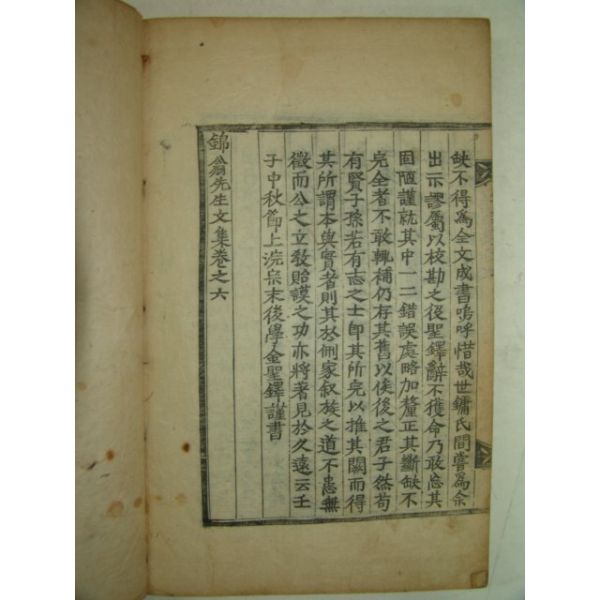 缺不得為全文成書嗚呼惜哉世鏽氏間嘗為余
出示謬屬以校勘之役聖鐸辭不獲命乃敢忘其
固陋謹就其中一二錯誤處略加釐正其斷缺不
完全者不敢輒補仍存其舊以俟後之君子然苟
有賢子孫若有志之士即其所完以推其闕而得
其所謂本與實者則其於刑家叙族之道不患無
徵而公之立敎貽謨之功亦將著見於久遠云壬
子中秋節上浣宗末後學金聖鐸謹書
錦翁先生文集卷之六